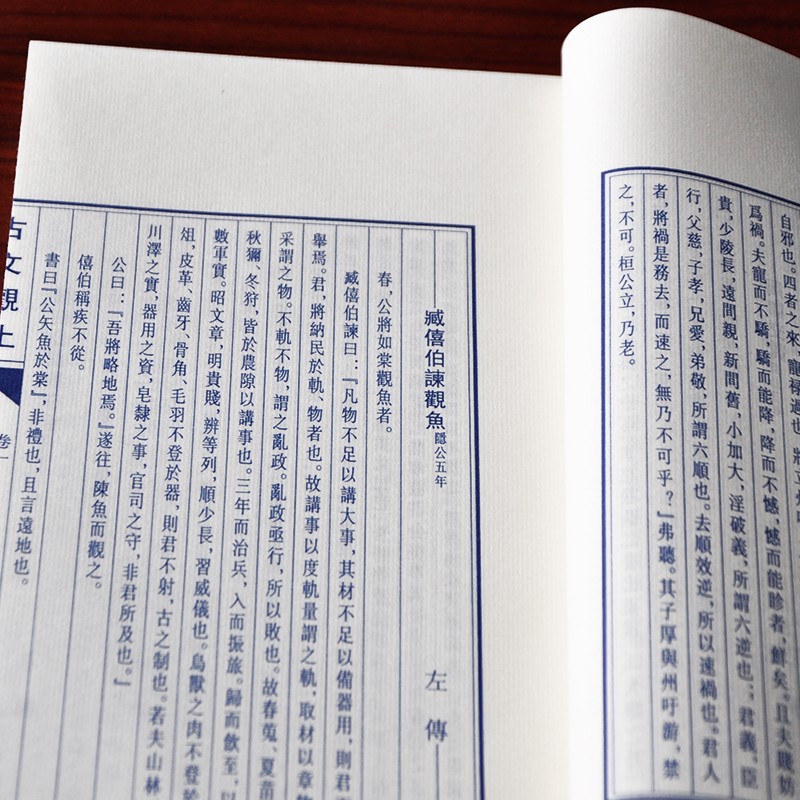 自邪也。四者之來，寵祿過也。將立州
爲禍。夫寵而不驕，驕而能降，降而不憾，憾而能眕者，鮮矣。且夫賤妨
貴，少陵長，遠間親，新間舊，小加大，淫破義，所謂六逆也；君義，臣
行，父慈，子孝，兄愛，弟敬，所謂六順也。去順效逆，所以速禍也。君人
者，將禍是務去，而速之，無乃不可乎？』弗聽。其子厚與州吁游，禁
之，不可。桓公立，乃老。
臧僖伯諫觀魚 隱公五年 左傳
春，公將如棠觀魚者。
臧僖伯諫曰：『凡物不足以講大事，其材不足以備器用，則君
舉焉。君，將納民於軌、物者也。故講事以度軌量謂之軌，取材以章
采謂之物。不軌不物，謂之亂政。亂政亟行，所以敗也。故春蒐、夏苗
秋獮、冬狩，皆於農隙以講事也。三年而治兵，入而振旅。歸而飲至，以
數軍實。昭文章，明貴賤，辨等列，順少長，習威儀也。鳥獸之肉不登於
俎，皮革、齒牙、骨角、毛羽不登於器，則君不射，古之制也。若夫山林
川澤之實，器用之資，皂隸之事，官司之守，非君所及也。』
公曰：『吾將略地焉。』遂往，陳魚而觀之。
僖伯稱疾不從。
書曰『公矢魚於棠』，非禮也，且言遠地也。
古文觀止 卷一